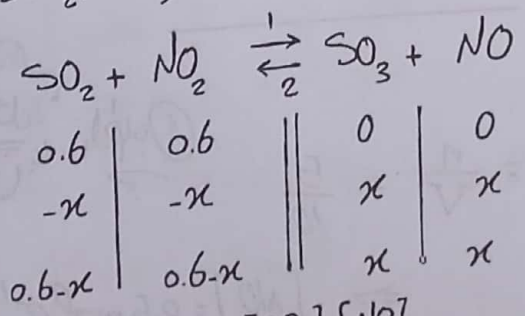 SO₂ + NO₂ 1 ⇌ 2 SO₃ + NO
0.6 | 0.6 || 0 | 0
-x | -x || x | x
0.6-x | 0.6-x || x | x